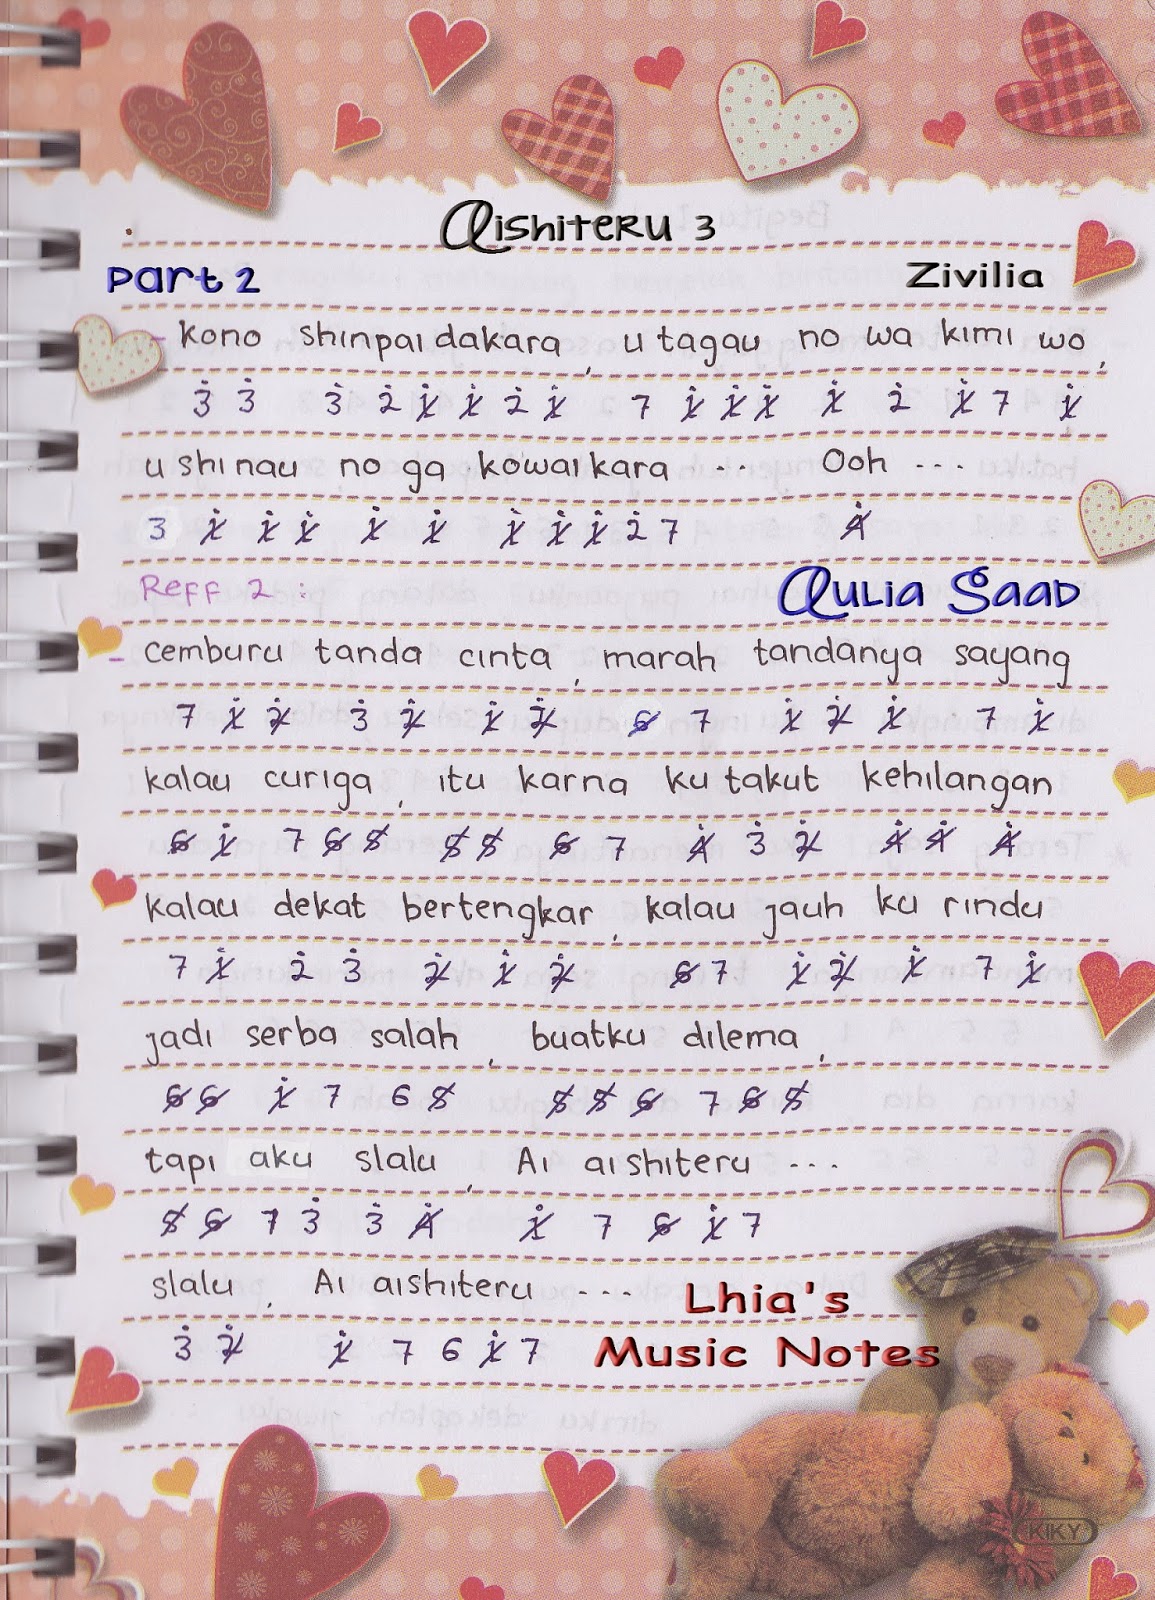 Aishiteru 3
Part 2 Zivilia
- kono shinpai dakara, utagau no wa kimi wo,
3̇ 3̇ 3̇ 2̇ 1̸̇ 1̸̇ 2̇ 1̸̇ 7 1̸̇ 1̸̇ 1̸̇ 1̸̇ 2̇ 1̸̇ 7 1̸̇
ushinau no ga kowaikara ... Ooh ...
3 1̸̇ 1̸̇ 1̸̇ 1̸̇ 1̸̇ 1̸̇ 1̸̇ 1̸̇ 2̇ 7 4̸̇
Reff 2 :
Aulia Saad
- cemburu tanda cinta, marah tandanya sayang
7 1̸̇ 2̸̇ 3̇ 2̸̇ 1̸̇ 2̸̇ 6̸ 7 1̸̇ 2̸̇ 1̸̇ 7 1̸̇
kalau curiga, itu karna ku takut kehilangan
6̸ 1̸̇ 7 6̸ 5̸ 5̸ 5̸ 6̸ 7 4̸̇ 3̇ 2̸̇ 4̸̇ 4̸̇ 4̸̇
kalau dekat bertengkar, kalau jauh ku rindu
7 1̸̇ 2̇ 3̇ 2̸̇ 1̸̇ 2̸̇ 6̸ 7 1̸̇ 2̸̇ 1̸̇ 7 1̸̇
jadi serba salah, buatku dilema,
6̸ 6̸ 1̸̇ 7 6 5̸ 5̸ 5̸ 6̸ 7 6̸ 5̸
tapi aku slalu, Ai aishiteru ...
5̸ 6̸ 7 3̇ 3̇ 4̸̇ 1̸̇ 7 6̸ 1̸̇ 7
slalu, Ai aishiteru ...
3̇ 2̸̇ 1̸̇ 7 6 1̸̇ 7
Lhia's
Music Notes
KIKY